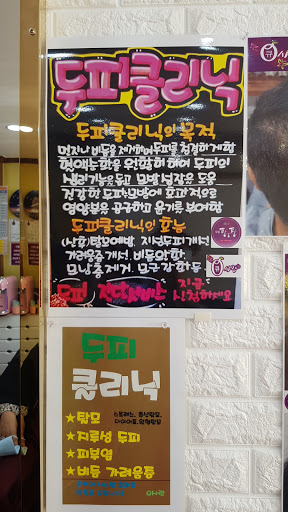 두피클리닉
두피클리닉의 목적
먼지나 비듬을 제거하여 두피를 청결하게 함
혈액순환을 원활히 하여 두피의
생리기능을 돕고 모발 성장을 도움
건강한 두피모발에 효과적으로
영양분을 공급하고 윤기를 부여함
두피클리닉의 효능
탈모예방, 지성두피개선,
가려움증 개선, 비듬완화,
모낭충제거, 모근강화 등.
두피 지금
신청하세요
두피
클리닉
★탈모
★지루성 두피
★피부염
★비듬 가려움증